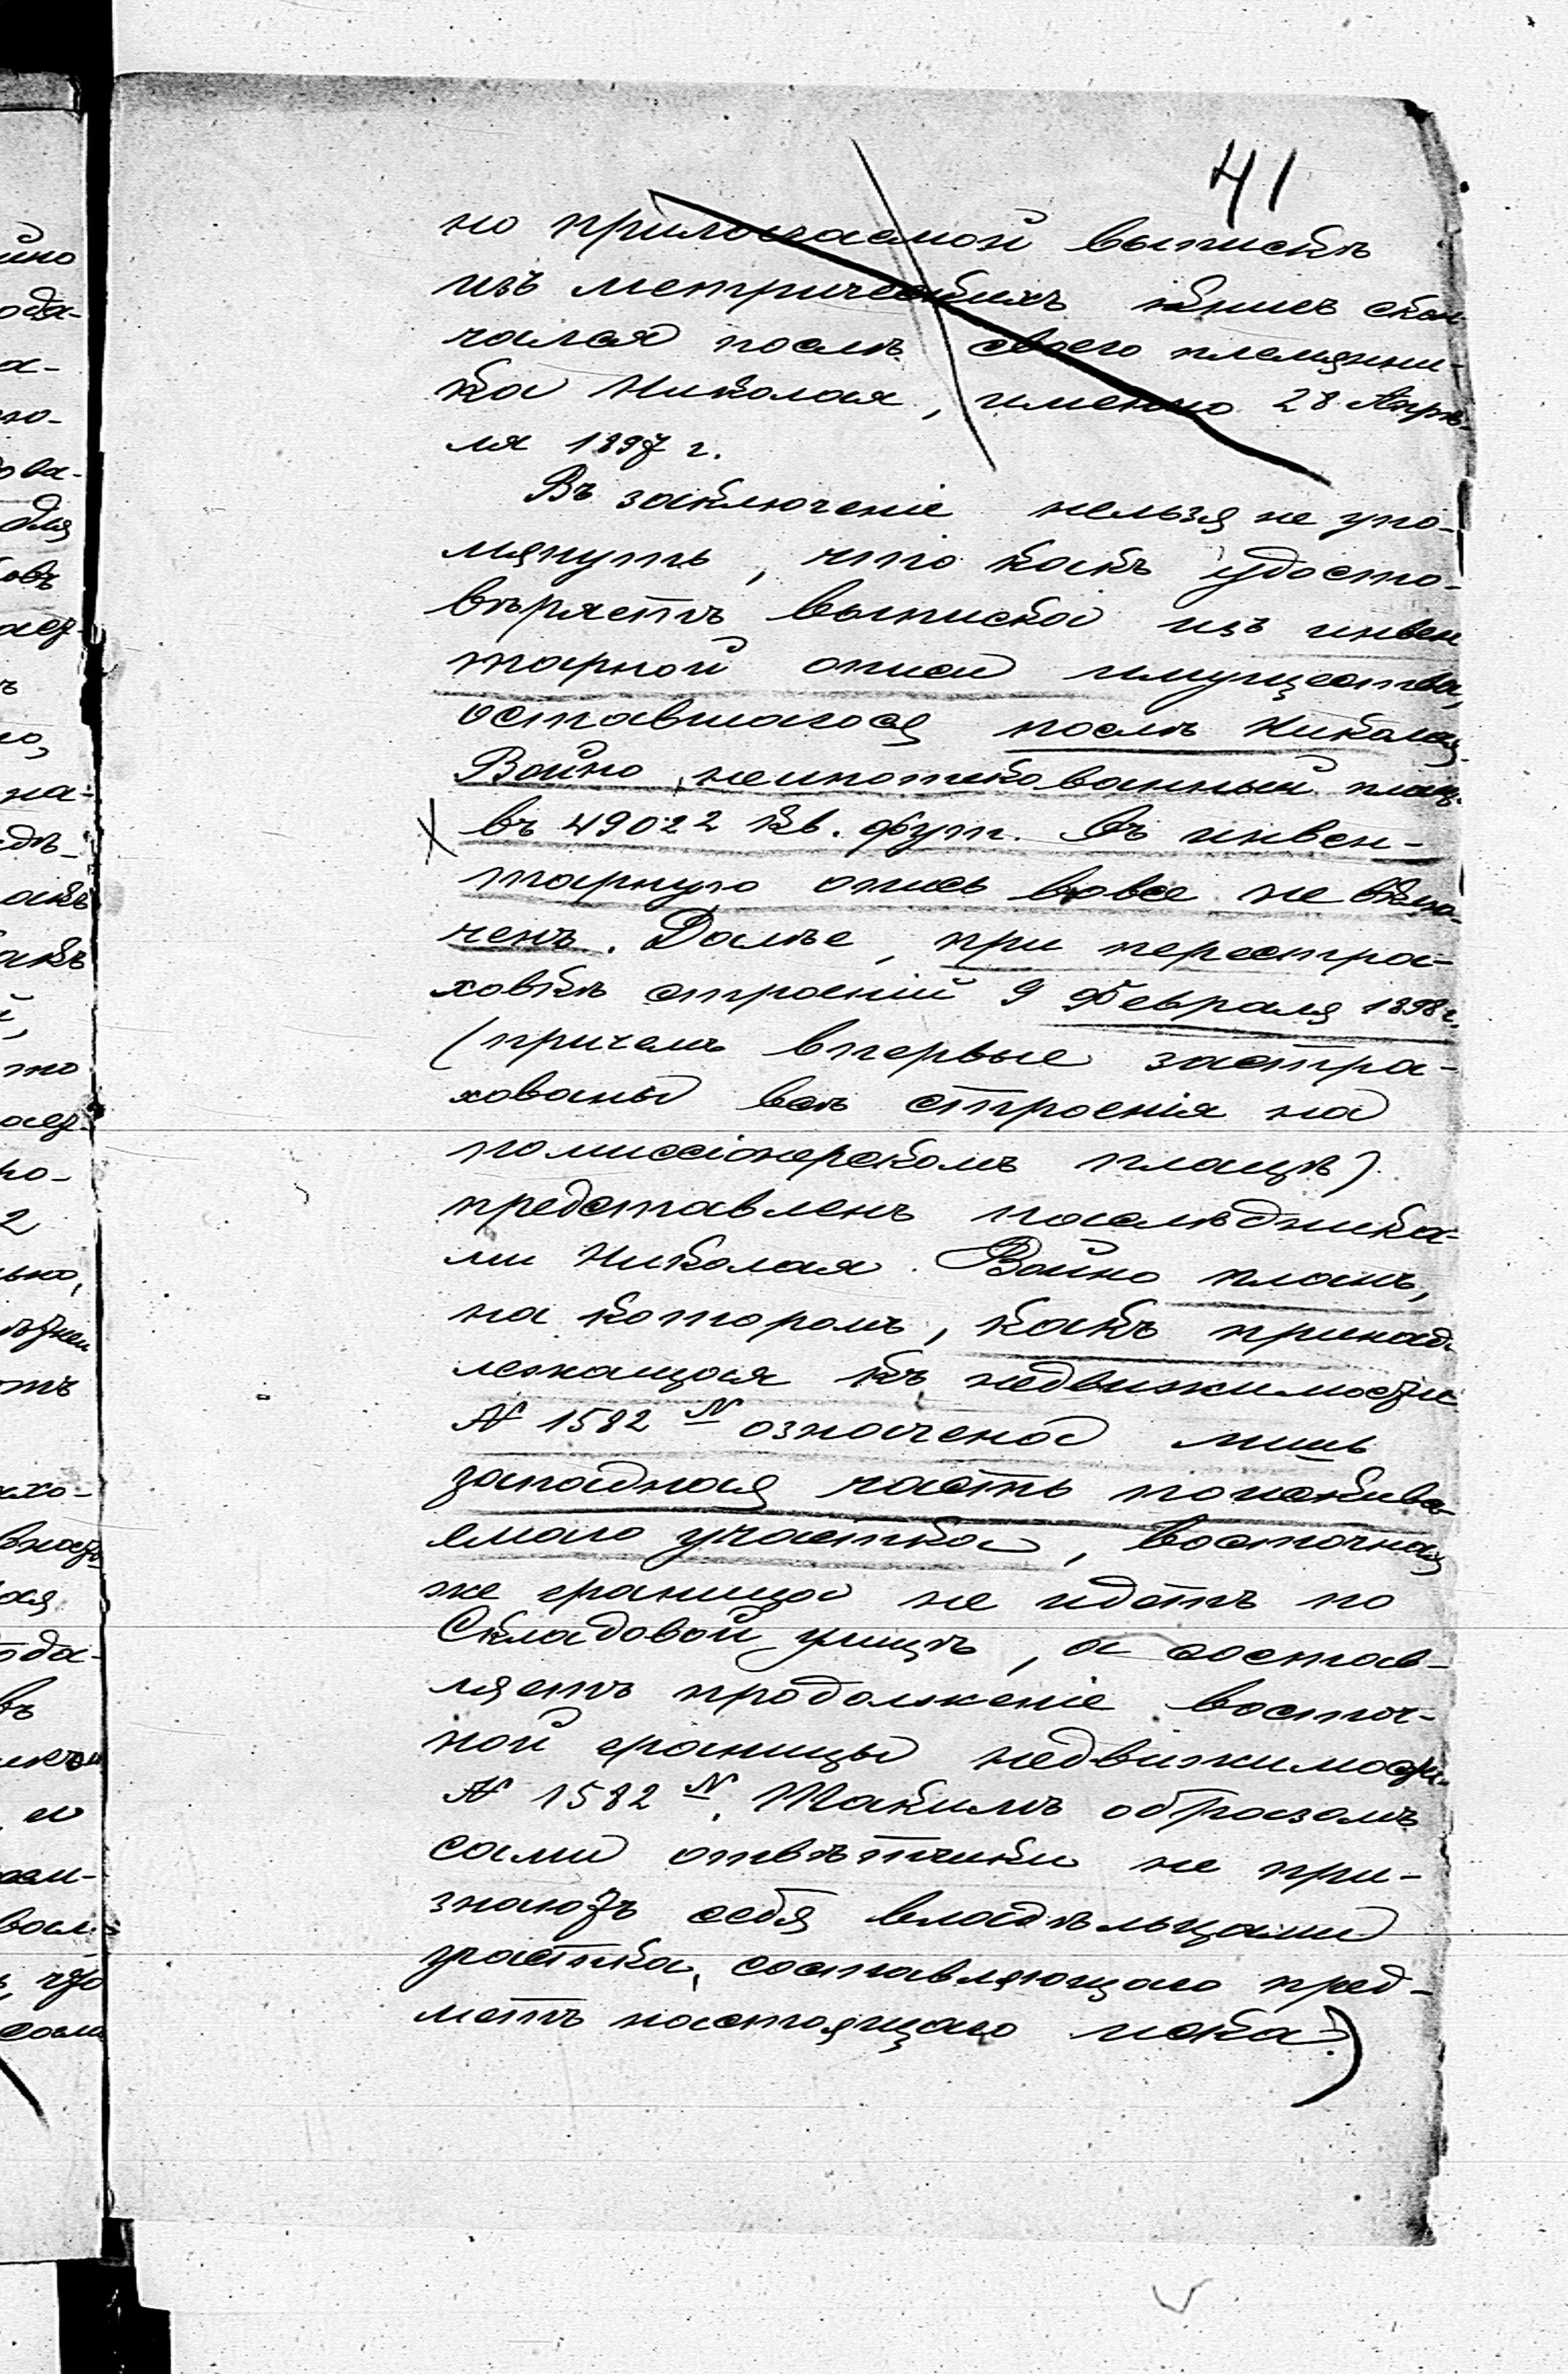 41
но прилогаемой выпискѣ
изъ метрическихъ книгъ скон-
чался послѣ своего племянни-
ка Николая, именно 28 Апрѣ-
ля 1897 г.
Въ заключеніе нельзя не упо-
мянуть, что какъ удосто-
вѣряетъ выписка изъ инвен
тарной описи имущества,
оставшагося послѣ Николая
Войно, неипотекованный плацъ
въ 49022 кв. фут. въ инвен-
тарную опись вовсе не вклю-
ченъ. Далѣе, при перестра-
ховкѣ строеній 9 Февраля 1898 г.
(причемъ впервые застра-
хованы всѣ строенія на
помиссіонерскомъ плацѣ)
представленъ наслѣдника-
ми Николая Войно планъ,
на которомъ, какъ принад-
лежащая къ недвижимости
№ 1582 N означена лишь
западная часть поискива-
емаго участка, восточная
же граница не идетъ по
Складовой улицѣ, а состав-
ляетъ продолженіе восточ-
ной границы недвижимости
№ 1582 N. Такимъ образомъ
сами отвѣтчики не при-
знаютъ себя владѣльцами
участка, составляющаго пред-
метъ настоящаго иска.)